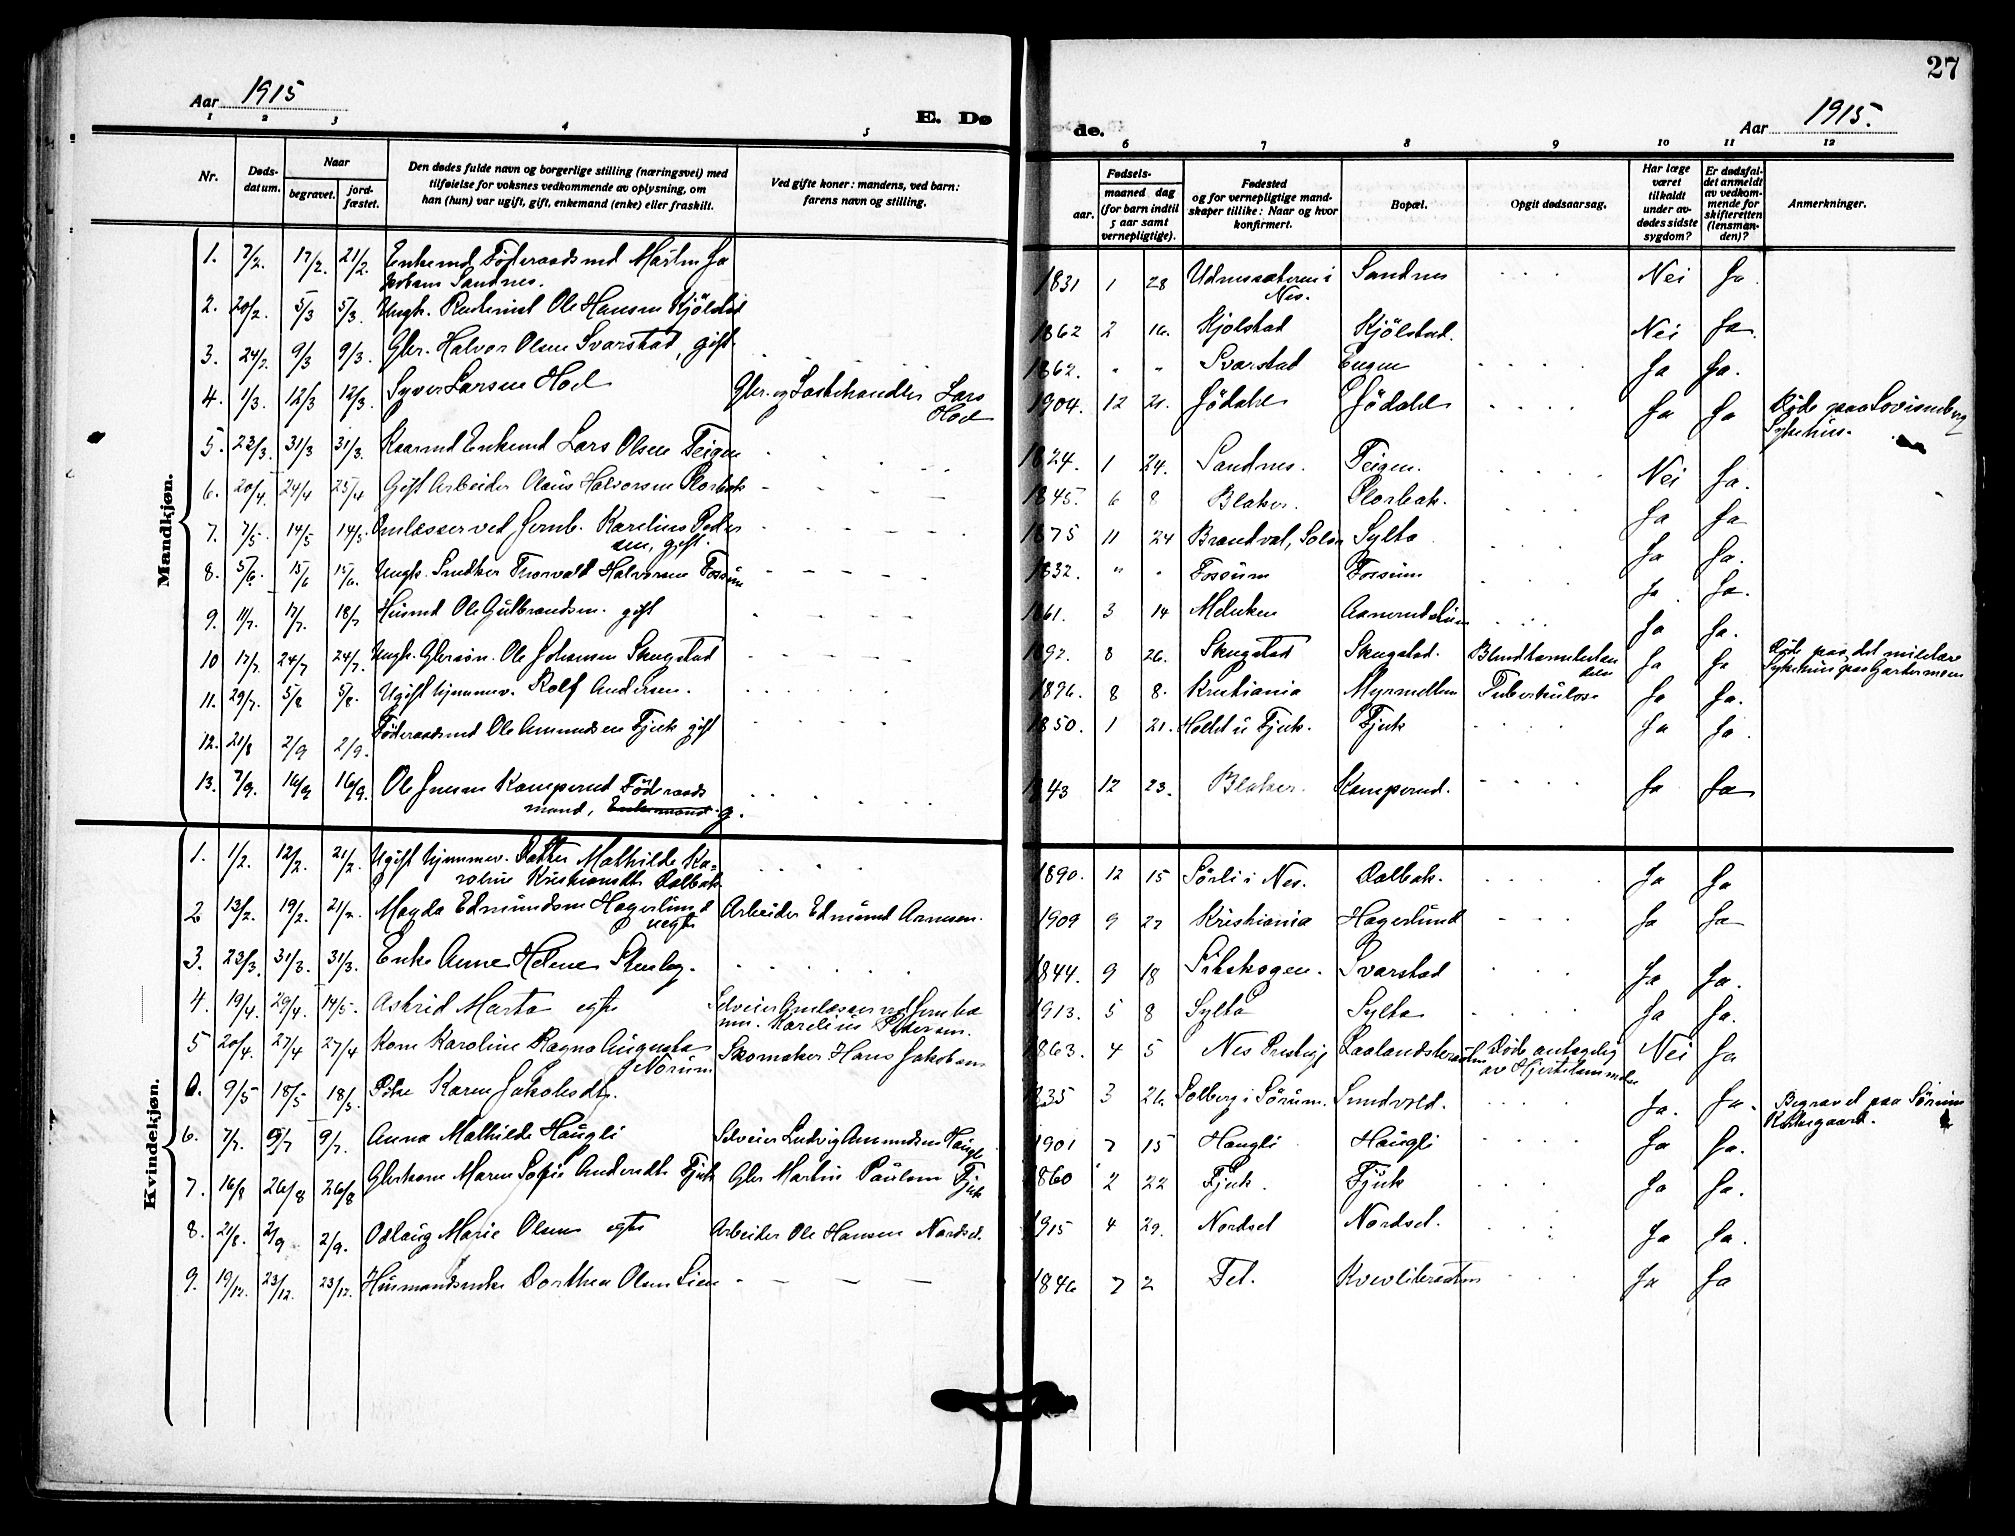 27
Aar 1915
E. Dø
de.
Aar 1915.
1 2 3 4 5 6 7 8 9 10 11 12
Nr.
Døds-
datum.
Naar
begravet.
jord-
fæstet.
Den dødes fulde navn og borgerlige stilling (næringsvei) med
tilføielse for voksnes vedkommende av oplysning, om
han (hun) var ugift, gift, enkemand (enke) eller fraskilt.
Ved gifte koner: mandens, ved barn:
farens navn og stilling.
Fødsels-
aar.
maaned dag
(for barn indtil
5 aar samt
vernepligtige).
Fødested
og for vernepligtige mand-
skaper tillike: Naar og hvor
konfirmert.
Bopæl.
Opgit dødsaarsag.
Har læge
været
tilkaldt
under av-
dødes sidste
sygdom?
Er dødsfal-
det anmeldt
av vedkom-
mende for
skifteretten
(lensman-
den)?
Anmerkninger.
Mandkjøn.
1. 7/2. 17/2. 21/2. Enkemd Föderaadsmd Martin Ja
kobsen Sandnes. 1831 1 28 i Nes. Sandnes Nei Ja.
2. 20/2. 5/3 5/3. Ungk. Ole Hansen Kjölstad 1862 2 16. Kjölstad Kjölstad. Nei Ja.
3. 24/2. 9/3 9/3. Gbr. Halvor Olsen Svarstad, gift 1862. " " Svarstad Engen Ja Ja.
4. 1/3. 12/3 12/3. Syver Larsen Hod Gbr. og Lars
Hod 1904. 12 21. Jödahl Jödahl Ja Ja Döde paa Lovisenberg
Sykehus.
5. 23/3. 31/3 31/3. Enkemd Lars Olsen Teigen 1824. 1 24. Sandnes. Teigen. Nei Ja.
6. 20/4. 24/4 25/4 Gift Arbeider Olaus Halvorsen 1845. 6 8 Blaker. Ja Ja
7. 7/5. 14/5 14/5. ved Jernb. Karelius Peder
sen, gift. 1875 11 24 Brandval, Solör Sylta Ja Ja.
8. 5/6. 15/6 15/6. Ungk. Snedker Thorvald Halvorsen Fossum 1832. " " Fossum Fossum Ja Ja.
9. 11/7. 17/7. 18/7 Husmd Ole Gulbrandsen. gift 1861. 3 14 Ja Ja.
10 17/7. 24/7 24/7. Ungk. Gbrsön. Ole Johansen Skugstad 1892. 8 26. Skugstad Skugstad. Blindtarmbetæn
delse Ja Ja Döde paa det militære
Sykehus paa Gardermoen
11. 29/7. 5/8 5/8. Ugift hjemmev. Rolf Andersen. 1896. 8 8. Kristiania Tuberkulose Ja Ja.
12. 21/8 2/9 2/9. Föderaadsmd Ole Amundsen Fjuk gift 1850. 1 21. Fjuk. Fjuk Ja Ja.
13. 7/9. 16/9 16/9. Ole Jensen Kamperud Föderaads
mand, Enkemand g. 1843 12 23. Blaker. Kamperud. Ja Ja
Kvindekjøn.
1. 1/2. 12/2. 21/2. Ugift hjemmev. Datter Mathilde Ka-
roline Kristiansdt. Dalbak 1890. 12 15 Sörli i Nes. Dalbak. Ja Ja
2 13/2. 19/2. 21/2. Magda Edmundsen Hagerlund
uegte Arbeider Edmund Arnesen. 1909 9 27 Kristiania Hagerlund Ja Ja
3. 23/3. 31/3. 31/3. Enke Anne Helene Stenby. 1844. 9 18 Svarstad Ja Ja.
4. 19/4. 29/4. 14/5. Astrid Marta egte Selveier ved Jernba
nen. Karelius Pedersen. 1913. 5 8 Sylta Sylta Ja Ja.
5 20/4. 27/4 27/4 Kone Karoline Ragna Augusta
Norum Skomaker Hans Jakobsen 1863. 4 5 Nes Prestegj Döde antagelig
av Hjertelammelse Nei Ja
0. 9/5 18/5 18/5. Pike Karen Jakobsdt. 1835 3 26. Solberg i Sörum. Sundvold. Ja. Ja. Begravet paa Sörum
Kirkegaard.
6. 7/7. 9/7 9/7. Anna Mathilde Haugli Selveier Ludvig Amundsen Haugli 1901 7 15 Haugli Haugli Ja Ja.
7. 16/8 26/8 26/8 Gbrkone Maren Sofie Andersdt. Fjuk Gbr Martin Paulsen Fjuk 1860 2 22 Fjuk. Fjuk Ja Ja.
8. 21/8. 2/9 2/9. Odlaug Marie Olsen egte Arbeider Ole Hansen Nordset. 1915 4 29. Nordset Nordset. Ja Ja.
9. 19/12. 23/12. 23/12. Husmandsenke Dorthea Olsen Lien 1846 7 2 Fet. Ja Ja